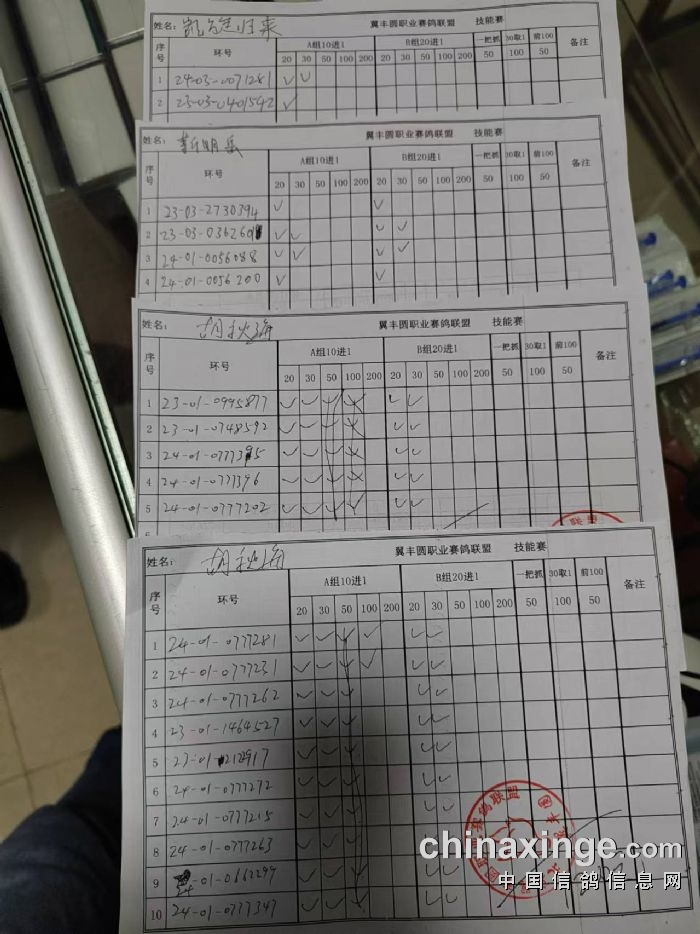 姓名：凯旋归来 翼丰圆职业赛鸽联盟 技能赛
序号 环号 A组10进1 B组20进1 一把抓 30取1 前100 备注
20 30 50 100 200 20 30 50 100 200 50 100 50
1 24-03-0071281 ✓ ✓
2 23-03-0401592 ✓
姓名： 翼丰圆职业赛鸽联盟 技能赛
序号 环号 A组10进1 B组20进1 一把抓 30取1 前100 备注
20 30 50 100 200 20 30 50 100 200 50 100 50
1 23-03-2730394 ✓ ✓
2 23-03-036260 ✓ ✓ ✓ ✓
3 24-01-0056088 ✓ ✓ ✓ ✓
4 24-01-0056200 ✓ ✓
姓名：胡秋海 翼丰圆职业赛鸽联盟 技能赛
序号 环号 A组10进1 B组20进1 一把抓 30取1 前100 备注
20 30 50 100 200 20 30 50 100 200 50 100 50
1 23-01-0995877 ✓ ✓ ✓ ✓ ✓
2 23-01-0748592 ✓ ✓ ✓ ✓ ✓
3 24-01-0777395 ✓ ✓ ✓ ✓ ✓
4 24-01-0777396 ✓ ✓ ✓ ✓ ✓
5 24-01-0777202 ✓ ✓ ✓ ✓ ✓ ✓
姓名：胡秋海 翼丰圆职业赛鸽联盟 技能赛
序号 环号 A组10进1 B组20进1 一把抓 30取1 前100 备注
20 30 50 100 200 20 30 50 100 200 50 100 50
1 24-01-0777281 ✓ ✓ ✓ ✓ ✓ ✓
2 24-01-0777231 ✓ ✓ ✓ ✓ ✓ ✓
3 24-01-0777262 ✓ ✓ ✓ ✓ ✓
4 23-01-1464527 ✓ ✓ ✓ ✓ ✓
5 23-01-1212917 ✓ ✓ ✓ ✓ ✓
6 24-01-0777272 ✓ ✓ ✓ ✓ ✓
7 24-01-0777215 ✓ ✓ ✓ ✓ ✓
8 24-01-0777263 ✓ ✓ ✓ ✓ ✓
9 24-01-0662299 ✓ ✓ ✓ ✓ ✓
10 24-01-0777347 ✓ ✓ ✓ ✓ ✓
chinaxinge.com
中国信鸽信息网